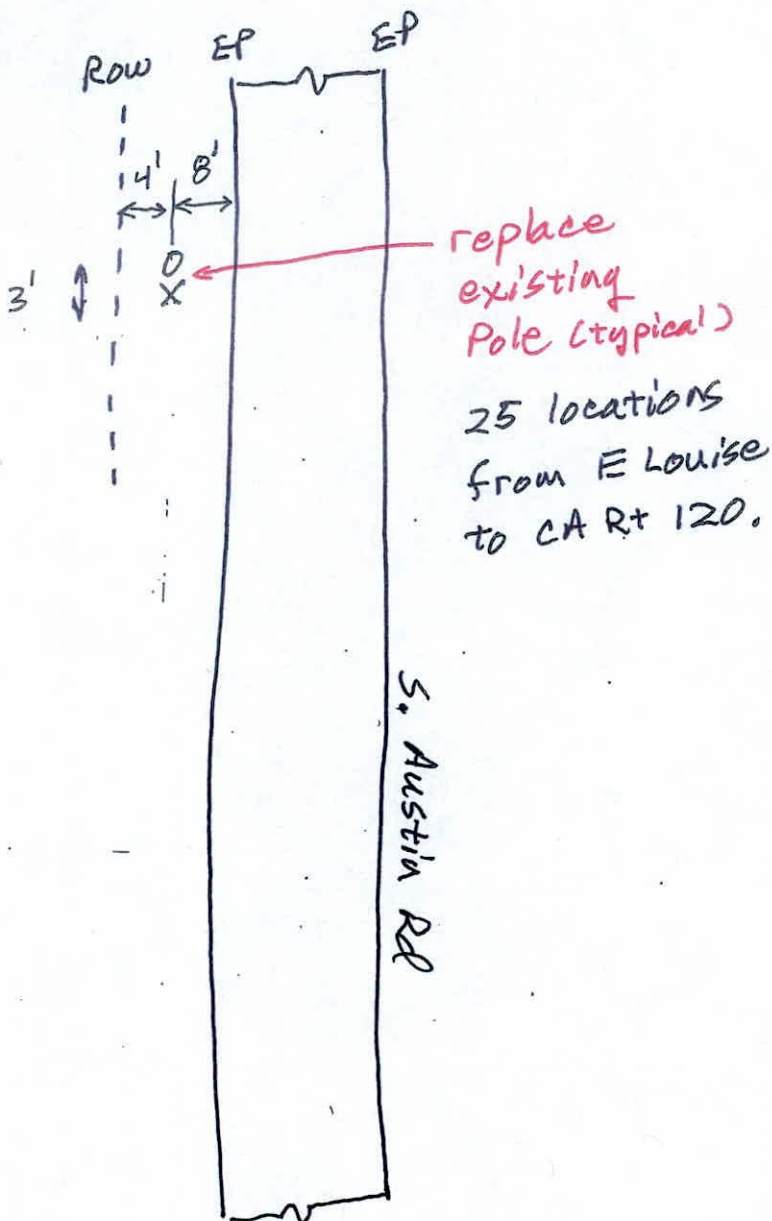 Row EP EP
4' 8'
O
X
3'
replace
existing
Pole (typical)
25 locations
from E Louise
to CA Rt 120.
S. Austin Rd